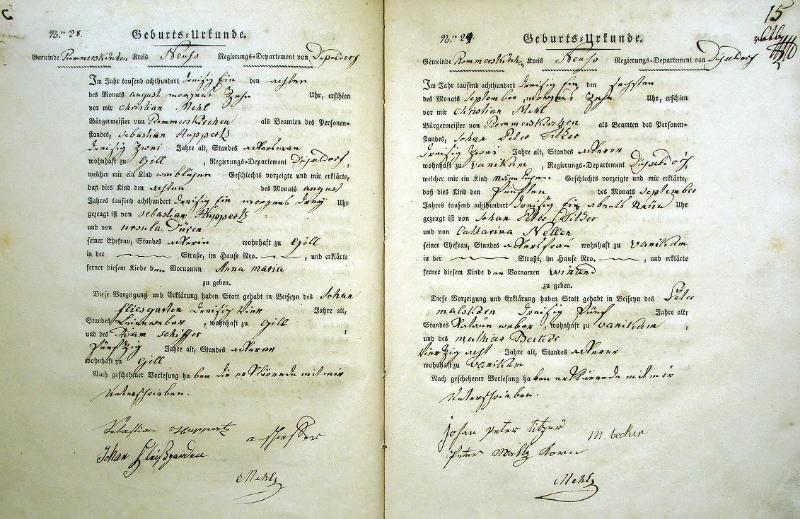 N.ro 28.
Geburts-Urkunde.
Gemeinde Rommerskirchen Kreis Neuss Regierungs-Departement von Düsseldorf
Im Jahr tausend achthundert dreisig Ein den achten
des Monats august morgens Zehn Uhr, erschien
vor mir Christian Mehl
Bürgermeister von Rommerskirchen als Beamten des Personen-
standes, Sebastian Huppertz
dreisig Zwei Jahre alt, Standes ackersman
wohnhaft zu Gill, Regierungs-Departement Düsseldorf,
welcher mir ein Kind weiblichen Geschlechts vorzeigte und mir erklärte,
daß dies Kind den achten des Monats august
Jahres tausend achthundert dreisig Ein morgens Uhr
gezeugt ist von Sebastian Huppertz
und von ursula
seiner Ehefrau, Standes ackerin wohnhaft zu Gill
in der Straße, im Hause Nro. , und erklärte
ferner diesem Kinde den Vornamen Anna maria
zu geben.
Diese Vorzeigung und Erklärung haben Statt gehabt in Beiseyn des Johan
dreisig Vier Jahre alt,
Standes Leineweber, wohnhaft zu Gill
und des Adam
fünfzig Jahre alt, Standes ackerer
wohnhaft zu Gill
Nach geschehener Vorlesung haben die erklärende mit mir
Unterschrieben.
Sebastian Huppertz
Johan
Mehl
15
N.ro 29.
Geburts-Urkunde.
Gemeinde Rommerskirchen Kreis Neuss Regierungs-Departement von Düsseldorf
Im Jahr tausend achthundert dreisig Ein den sechsten
des Monats September morgens Zehn Uhr, erschien
vor mir Christian Mehl
Bürgermeister von Rommerskirchen als Beamten des Personen-
standes, Johan Peter
dreisig Zwei Jahre alt, Standes ackerer
wohnhaft zu Vanikum, Regierungs-Departement Düsseldorf
welcher mir ein Kind Geschlechts vorzeigte und mir erklärte,
daß dies Kind den fünften des Monats September
Jahres tausend achthundert dreisig Ein abends Neun Uhr
gezeugt ist von Johan Peter
und von Catharina Nellen
seiner Ehefrau, Standes ackersfrau wohnhaft zu Vanikum
in der Straße, im Hause Nro. , und erklärte
ferner diesem Kinde den Vornamen Winand
zu geben.
Diese Vorzeigung und Erklärung haben Statt gehabt in Beiseyn des Peter
dreisig fünf Jahre alt,
Standes weber, wohnhaft zu Vanikum,
und des mathias
vierzig acht Jahre alt, Standes ackerer
wohnhaft zu Vanikum
Nach geschehener Vorlesung haben erklärende mit mir
Unterschrieben.
Johan Peter Titzer
M. becker
Peter
Mehl